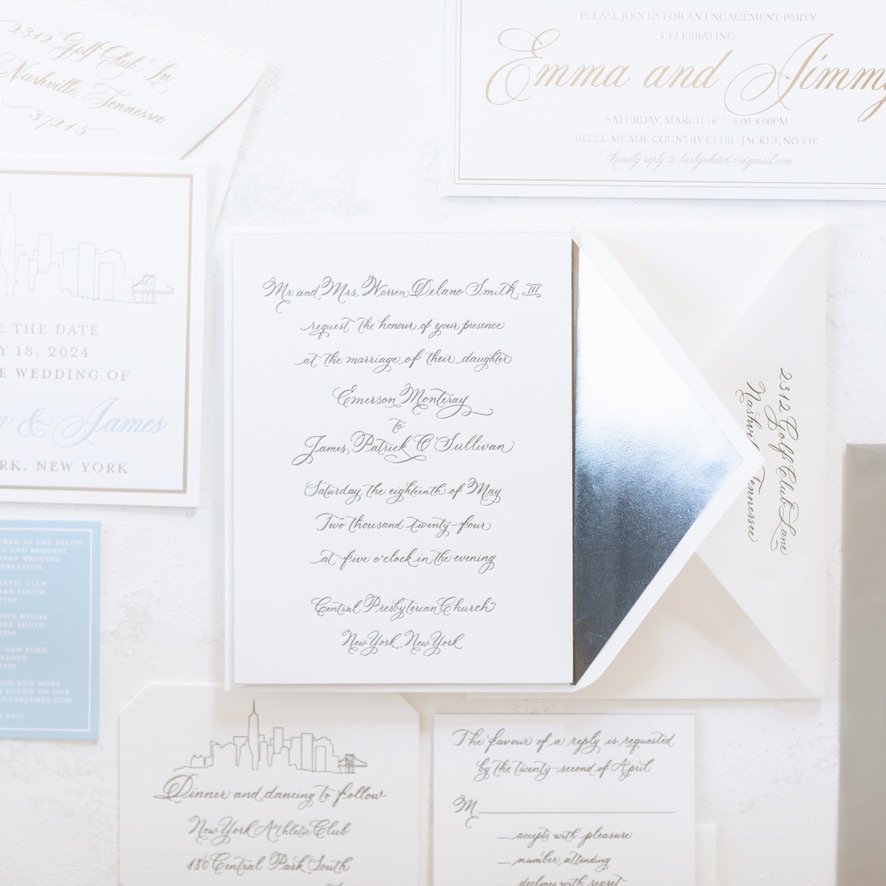 2312 Golf Club Ln
Nashville, Tennessee
37215
PLEASE JOIN US FOR AN ENGAGEMENT PARTY
CELEBRATING,
Emma and Jimmy
SATURDAY, MARCH 16TH · 6:00-8:00PM
BELLE MEADE COUNTRY CLUB · JACKET, NO TIE
Kindly reply to
THE DATE
18, 2024
WEDDING OF
& James
NEW YORK
Mr and Mrs. Warren Delano Smith III
request the honour of your presence
at the marriage of their daughter
Emerson Monteray
to
James Patrick O'Sullivan
Saturday, the eighteenth of May
Two thousand twenty-four
at five o'clock in the evening
Central Presbyterian Church
New York, New York
2312 Golf Club Lane
Nashville, Tennessee
AT THE BELOW
AND REQUEST
WEDDING
CLUB
SOUTH
HOUSE
SOUTH
NEW YORK
AVENUE
AND MORE
FOUND ON OUR
NYC!
Dinner and dancing to follow
New York Athletic Club
180 Central Park South
New York, New York
The favour of a reply is requested
by the twenty-second of April
M
accepts with pleasure
number attending
declines with regret